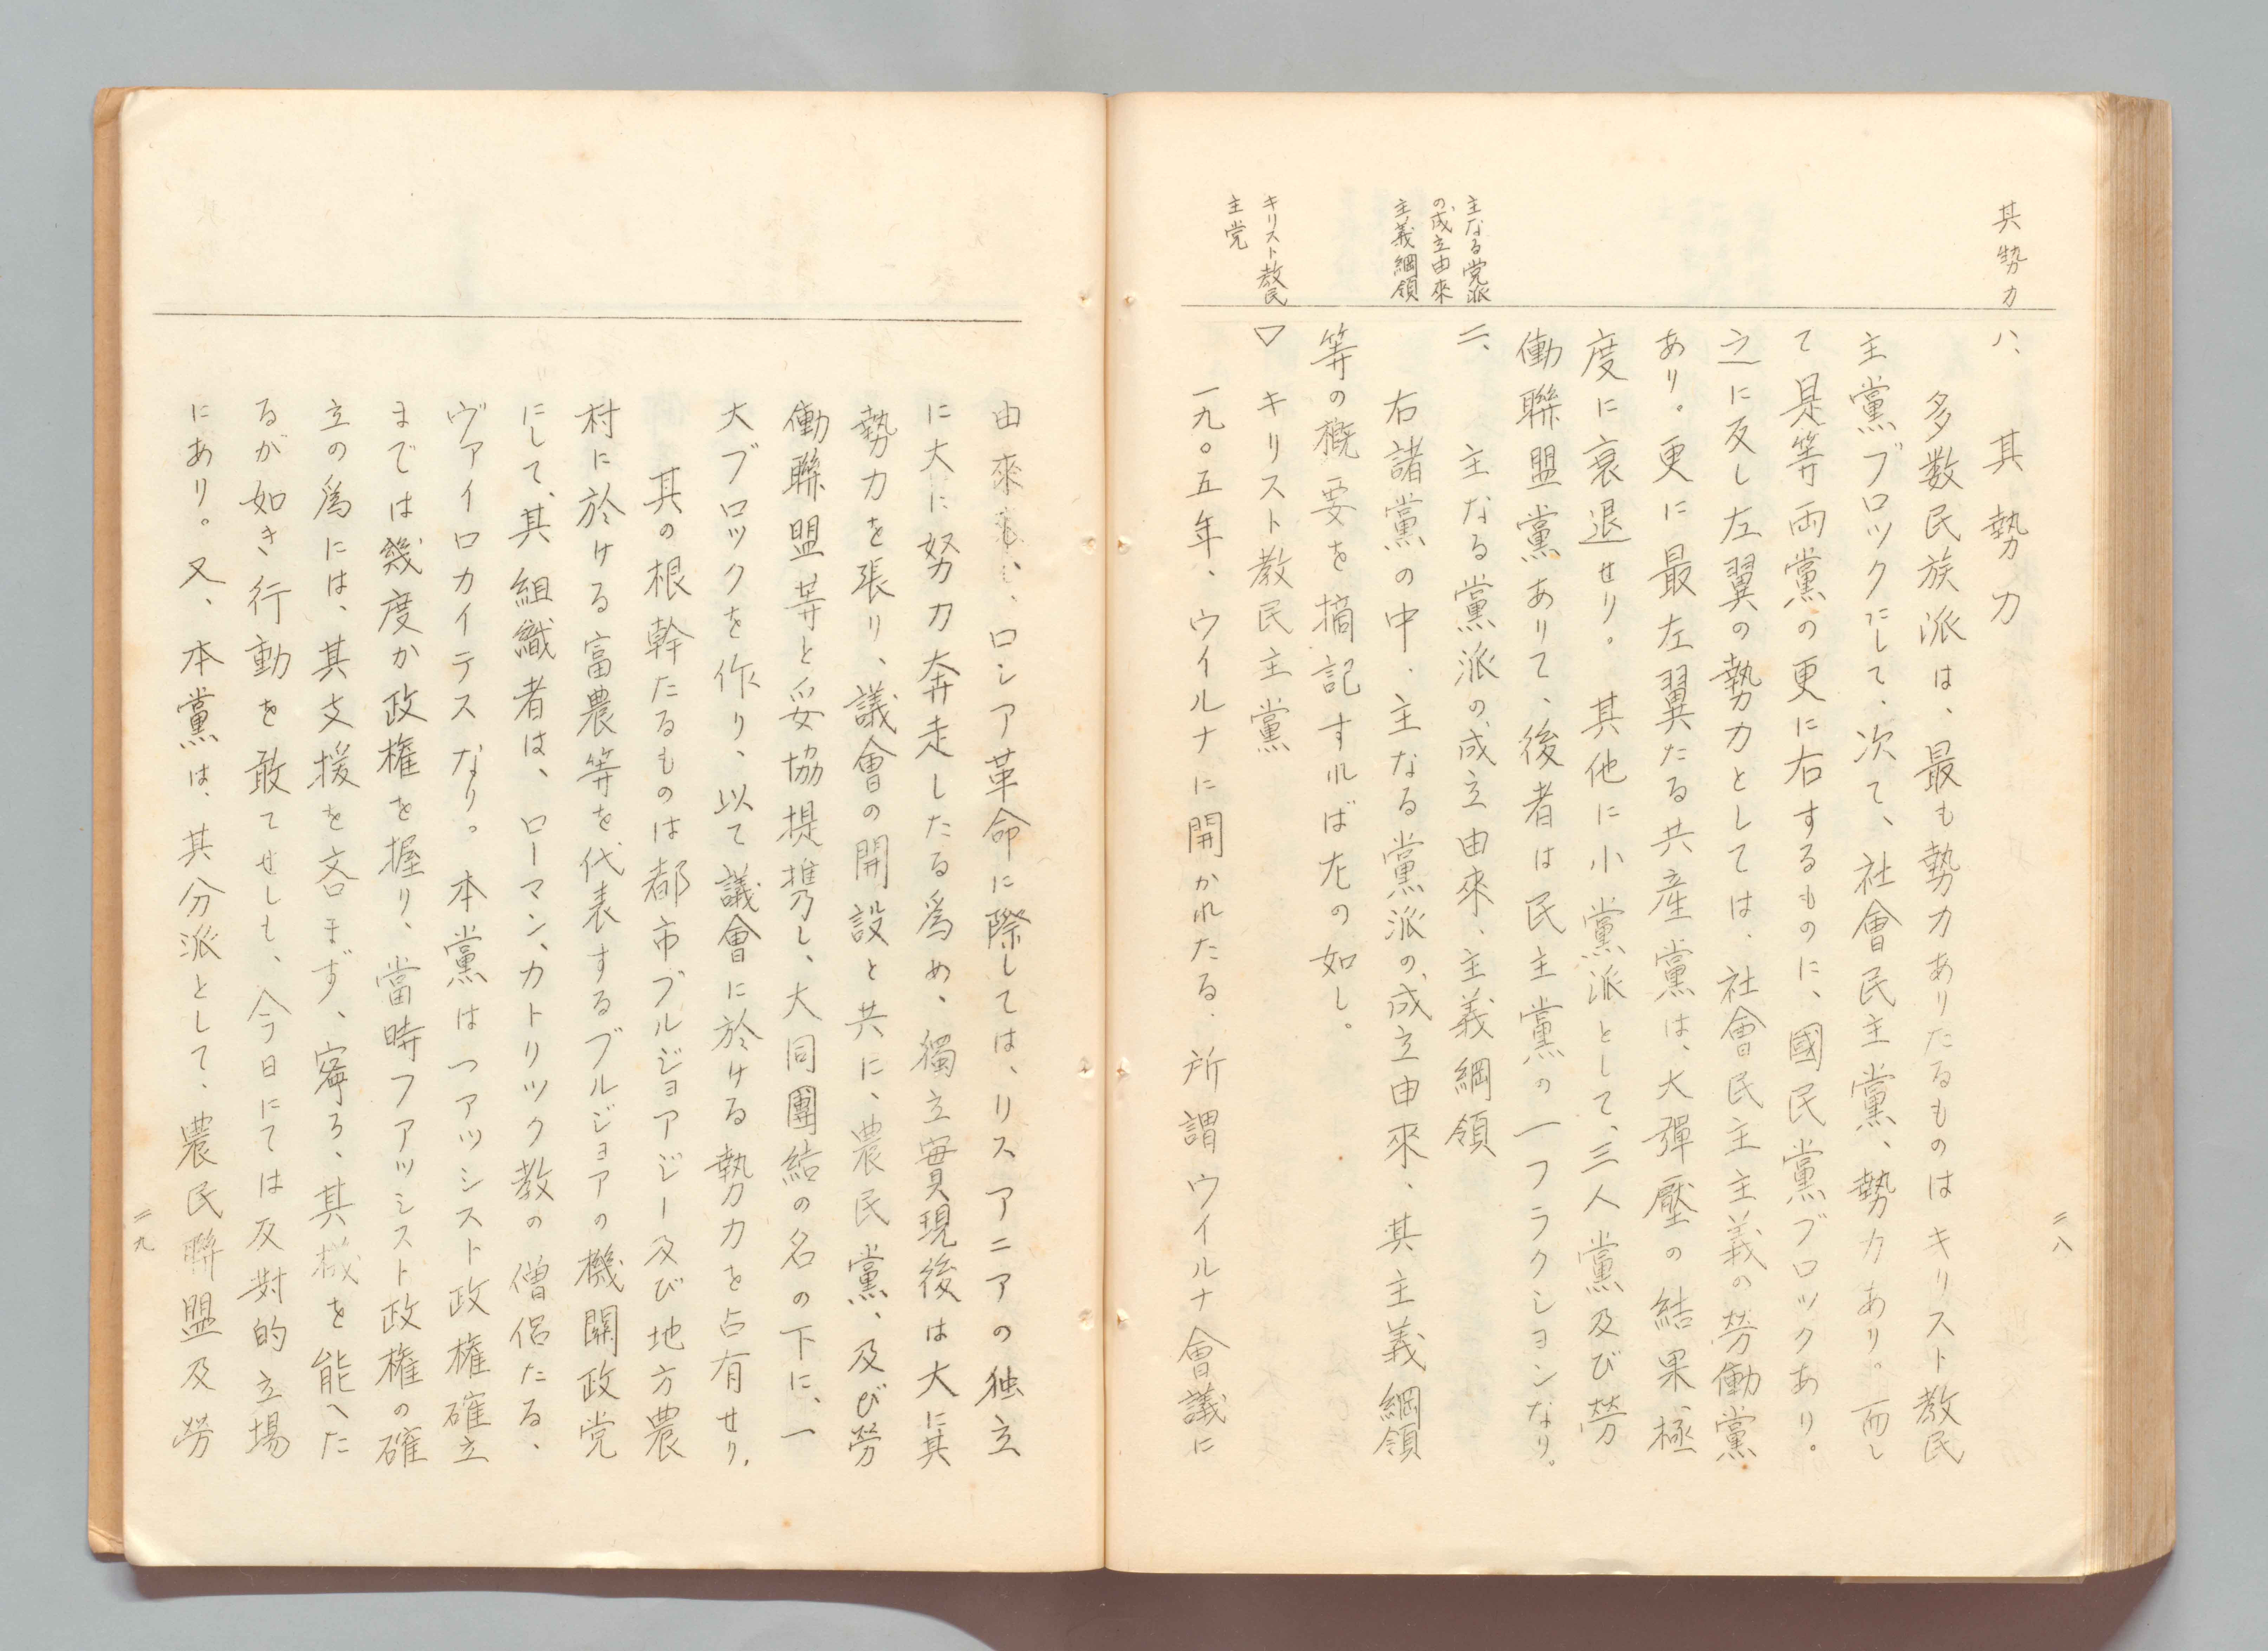 其勢力
ハ、 其勢力
多数民族派は、最も勢力ありたるものはキリスト教民
主黨ブロックにして、次て、社會民主黨、勢力あり。而し
て是等両黨の更に右するものに、國民黨ブロックあり。
之に反し左翼の勢力としては、社會民主主義の勞働黨
あり。更に最左翼たる共産黨は、大彈壓の結果、極
度に衰退せり。其他に小黨派として、三人黨及び勞
働聯盟黨ありて、後者は民主黨の一フラクションなり。
主なる党派
の成立由來
主義綱領
二、 主なる黨派の成立由來、主義綱領
右諸黨の中、主なる黨派の成立由來、其主義綱領
等の概要を摘記すれば左の如し。
キリスト教民
主党
▽ キリスト教民主黨
一九〇五年、ウイルナに開かれたる、所謂ウイルナ會議に
二八
由來し、ロシア革命に際しては、リスアニアの独立
に大に努力奔走したる爲め、獨立實現後は大に其
勢力を張り、議會の開設と共に、農民黨、及び勞
働聯盟等と妥協提携し、大同團結の名の下に、一
大ブロックを作り、以て議會に於ける勢力を占有せり、
其の根幹たるものは都市ブルジョアジー及び地方農
村に於ける富農等を代表するブルジョアの機関政党
にして、其組織者は、ローマン、カトリック教の僧侶たる、
ヴァイロカイテスなり。本黨はつアッシスト政権確立
までは幾度か政権を握り、當時ファッシスト政権の確
立の爲には、其支援を吝まず、寧ろ、其を能へた
るが如き行動を敢てせしも、今日にては反対的立場
にあり。又、本黨は、其分派として、農民聯盟及勞
二九